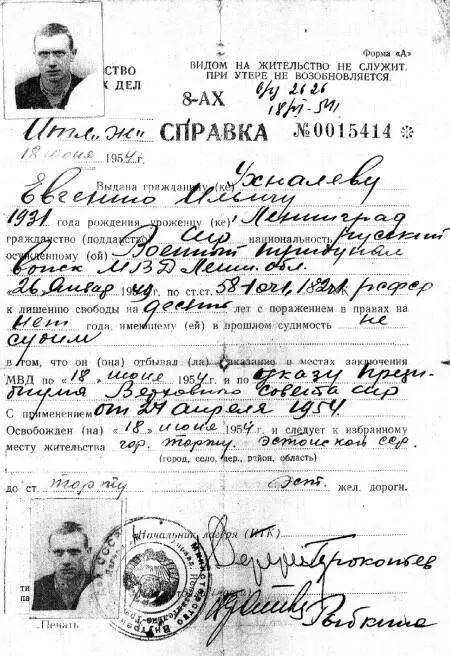 Форма «А»
СТВО
Х ДЕЛ
ВИДОМ НА ЖИТЕЛЬСТВО НЕ СЛУЖИТ.
ПРИ УТЕРЕ НЕ ВОЗОБНОВЛЯЕТСЯ.
8-АХ
СПРАВКА №0015414
18 июня 1954г.
Выдана гражданину (ке) Ухналеву
Евгению Ильичу
1931 года рождения, уроженцу (ке) Ленинград
гражданство (подданство) СССР национальность русский
осужденному (ой) Военный трибунал
войск МВД Ленин. обл.
января по ст.ст. РСФСР
к лишению свободы на десять лет с поражением в правах на
нет года, имеющему (ей) в прошлом судимость не
судим
в том, что он (она) отбывал (ла) наказание в местах заключения
МВД по «18» июня 1954 г. и по указу Прези-
диума Верховного совета СССР
С применением от 24 апреля 1954
Освобожден (на) «18» июня 1954 и следует к избранному
месту жительства гор. Тарту, Эстонской ССР.
(город, село, дер., район, область)
до ст. Тарту Эст. жел. дороги.
Начальник лагеря (ИТК)
Прокопьев
Рыбкина
Печать